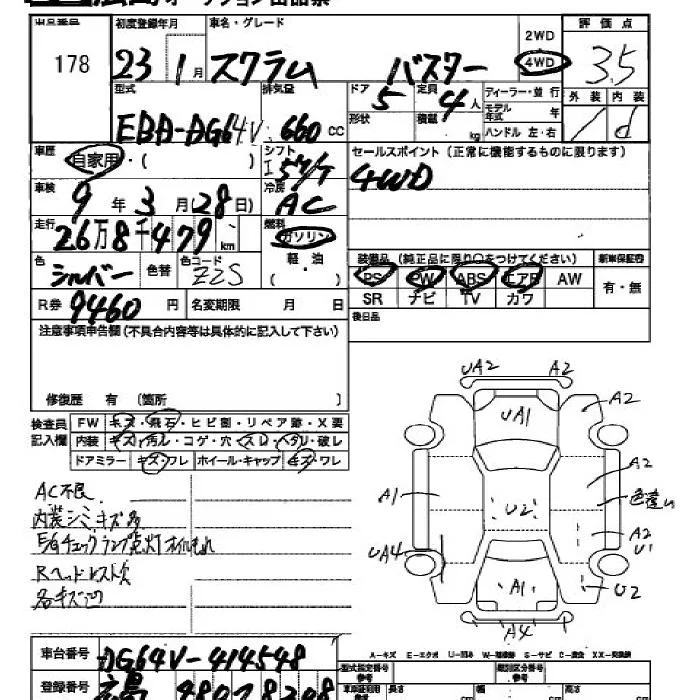 出品番号
178
初度登録年月
23 1月
車名・グレード
スクラム バスター
2WD
4WD
評価点
3.5
外装 内装
/ d
型式
EBD-DG64V
排気量
660 cc
ドア
5
定員
4人
形状
積載 kg
ディーラー・並行
モデル年式 年
ハンドル 左・右
車歴
自家用・( )
シフト
I 5MT
冷房
AC
車検
9年3月28日
走行
26万8千479 km
燃料
ガソリン
軽・油
( )
色
シルバー
色替
色コード
Z2S
R券
9460円
名変期限 月 日
セールスポイント (正常に機能するものに限ります)
4WD
装備品 (純正品に限り○をつけてください)
新車保証書
PS PW ABS エアB AW
SR ナビ TV カワ
有・無
後日品
注意事項申告欄(不具合内容等は具体的に記入して下さい)
修復歴 有 (箇所 )
検査員記入欄
FW キズ・飛石・ヒビ割・リペア跡・X要
内装 キズ・汚レ・コゲ・穴・スレ・ヘタリ・破レ
ドアミラー キズ・ワレ ホイール・キャップ キズ・ワレ
AC不良
内装シミ キズ多
E/Gチェックランプ点灯 オイルもれ
Rヘッドレスト欠
各キズ凹
UA2 A2
UA1 A2
A1 U2 A2
色違い
UA4 A2
U1
A1 U2
A4
A-キズ E-エクボ U-凹み W-補修跡 S-サビ C-腐食 XX-交換跡
車台番号
DG64V-414548
登録番号
広島 480
型式指定番号
類別区分番号
長さ cm
幅 cm
高さ cm